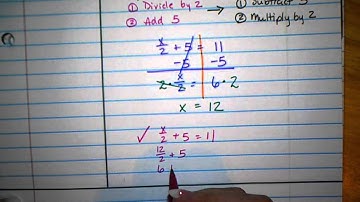 ① Divide by 2 → ① Subtract 5
② Add 5 ② Multiply by 2
x/2 + 5 = 11
-5 -5
2 · x/2 = 6 · 2
x = 12
✓ x/2 + 5 = 11
12/2 + 5
6